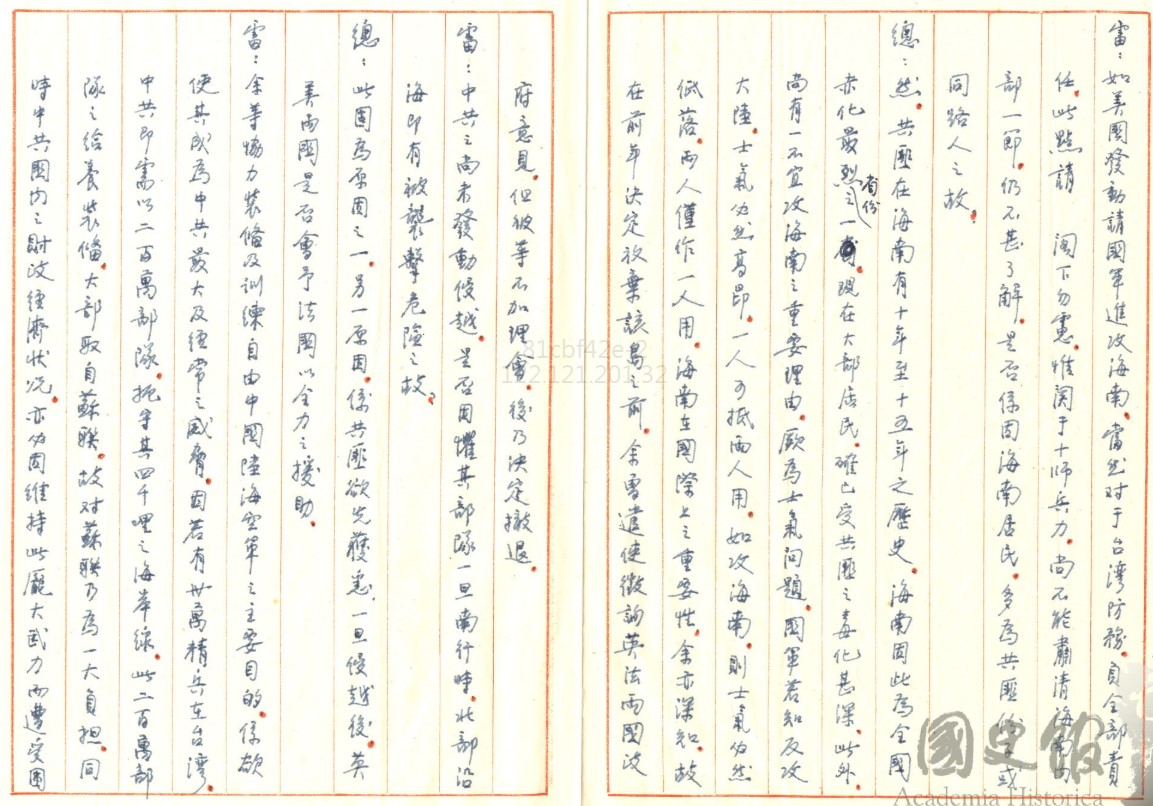 雷：如美國發動請國軍進攻海南，當然对于台灣防務，負全部責
任，此點請　閣下勿慮，惟関于十師兵力，尚不能肅清海南内
部一節，仍不甚了解，是否係因海南居民，多為共匪份子或
同路人之故。
總：然。共匪在海南有十年至十五年之歷史，海南因此為全國
赤化最烈之一省份，現在大部居民，確已受共匪之毒化甚深，此外，
尚有一不宜攻海南之重要理由，厥為士氣问題，國軍若知反攻
大陸，士氣必然高昂，一人可抵兩人用，如攻海南，則士氣必然
低落，兩人僅作一人用，海南在國際上之重要性，余亦深知，故
在前年決定放棄該島之前，余曾遣使徵詢英法兩國政
府意見，但彼等不加理會，後乃決定撤退。
雷：中共之尚未發動侵越，是否因懼其部隊一旦南行時，北部沿
海即有被襲擊危險之故。
總：此固為原因之一，另一原因，係共匪欲先獲悉，一旦侵越後，英
美兩國是否會予法國以全力之援助。
雷：余等協力裝備及訓練自由中國陸海空軍之主要目的，係欲
使其成為中共最大及經常之威脅，因若有卅萬精兵在台灣，
中共即需以二百萬部隊，扼守其四千哩之海岸線，此二百萬部
隊之給養裝備，大部取自蘇聯，故对蘇聯乃為一大負担，同
時中共國内之財政經濟狀况，亦必因維持此龐大武力而遭受困
81cbf42e-2
122.121.201.32
國史館
Academia Historica